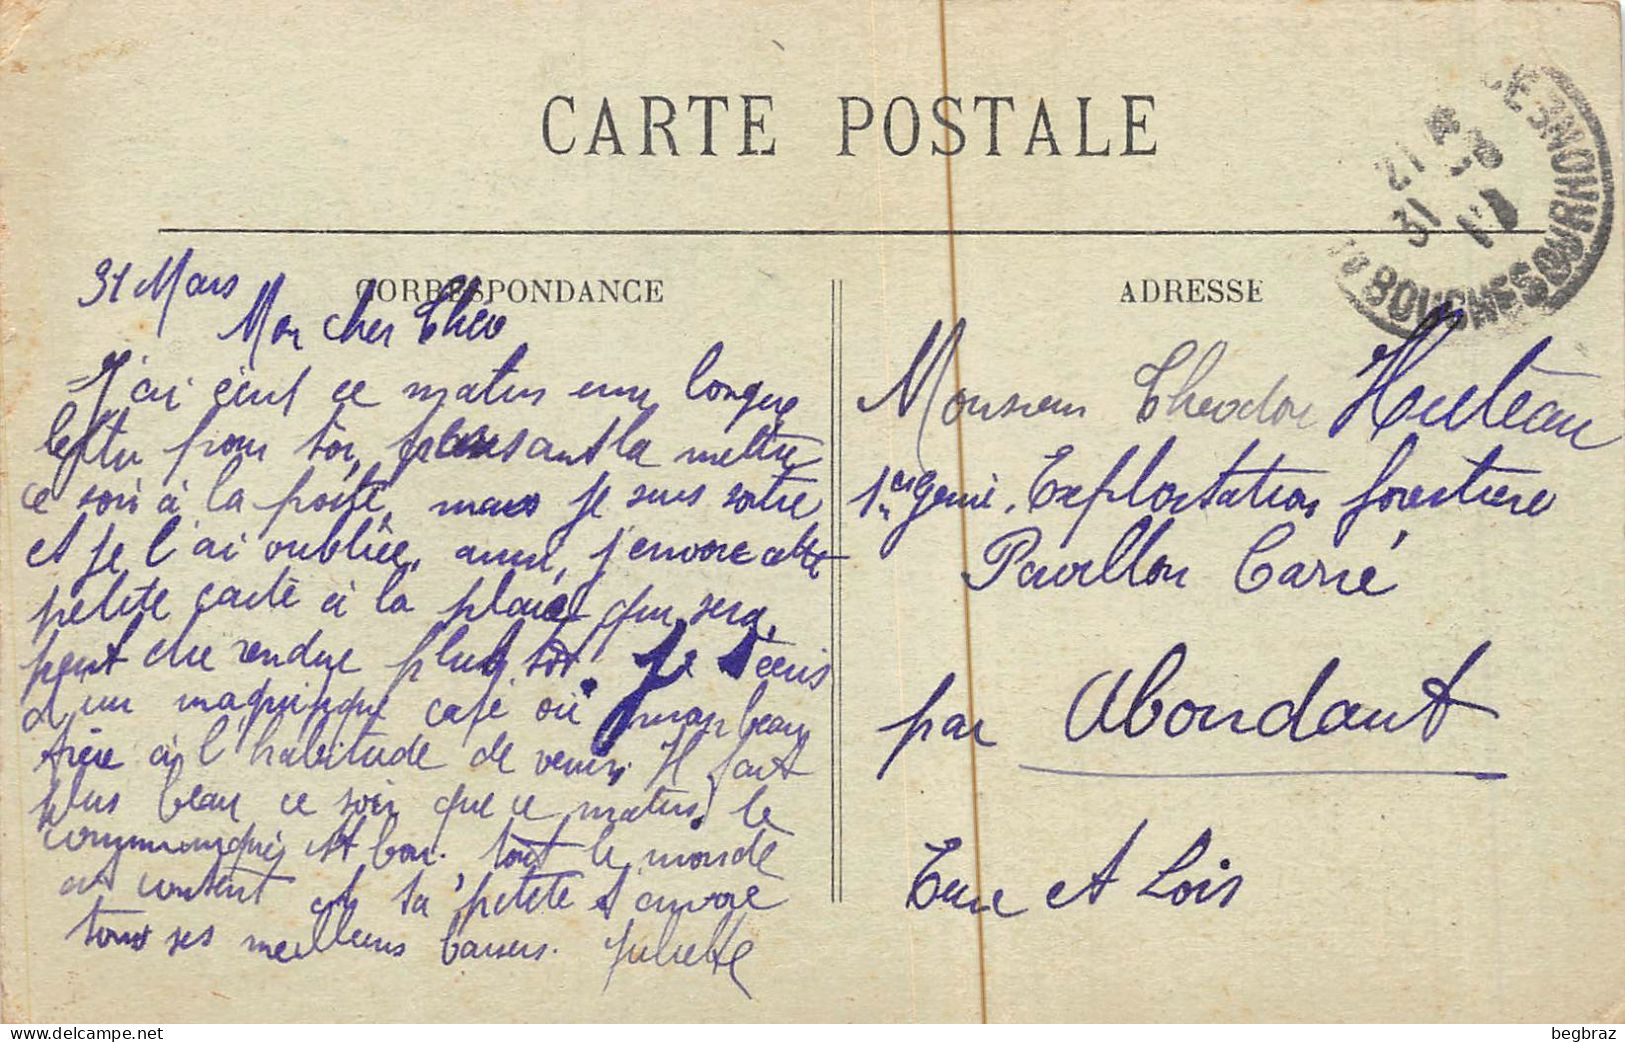 CARTE POSTALE
CORRESPONDANCE
31 Mars
Mon cher Théo
J'ai écrit ce matin une longue
lettre pour toi, pensant la mettre
ce soir à la poste, mais je suis sortie
et je l'ai oubliée, aussi, j'envoie cette
petite carte à la place qui sera,
peut être rendue plus tôt. Je t'écris
d'un magnifique café où mon beau
frère à l'habitude de venir. Il fait
plus beau ce soir que ce matin, le
communiqué est bon. tout le monde
est content et ta petite t'envoie
tous ses meilleurs baisers. Juliette
ADRESSE
Monsieur Theodore Huteau
1er Génie. Exploitation forestière
Pavillon Carré
par Abondant
Eure et Loir
BOUCHES DU RHONE
21
31
begbraz